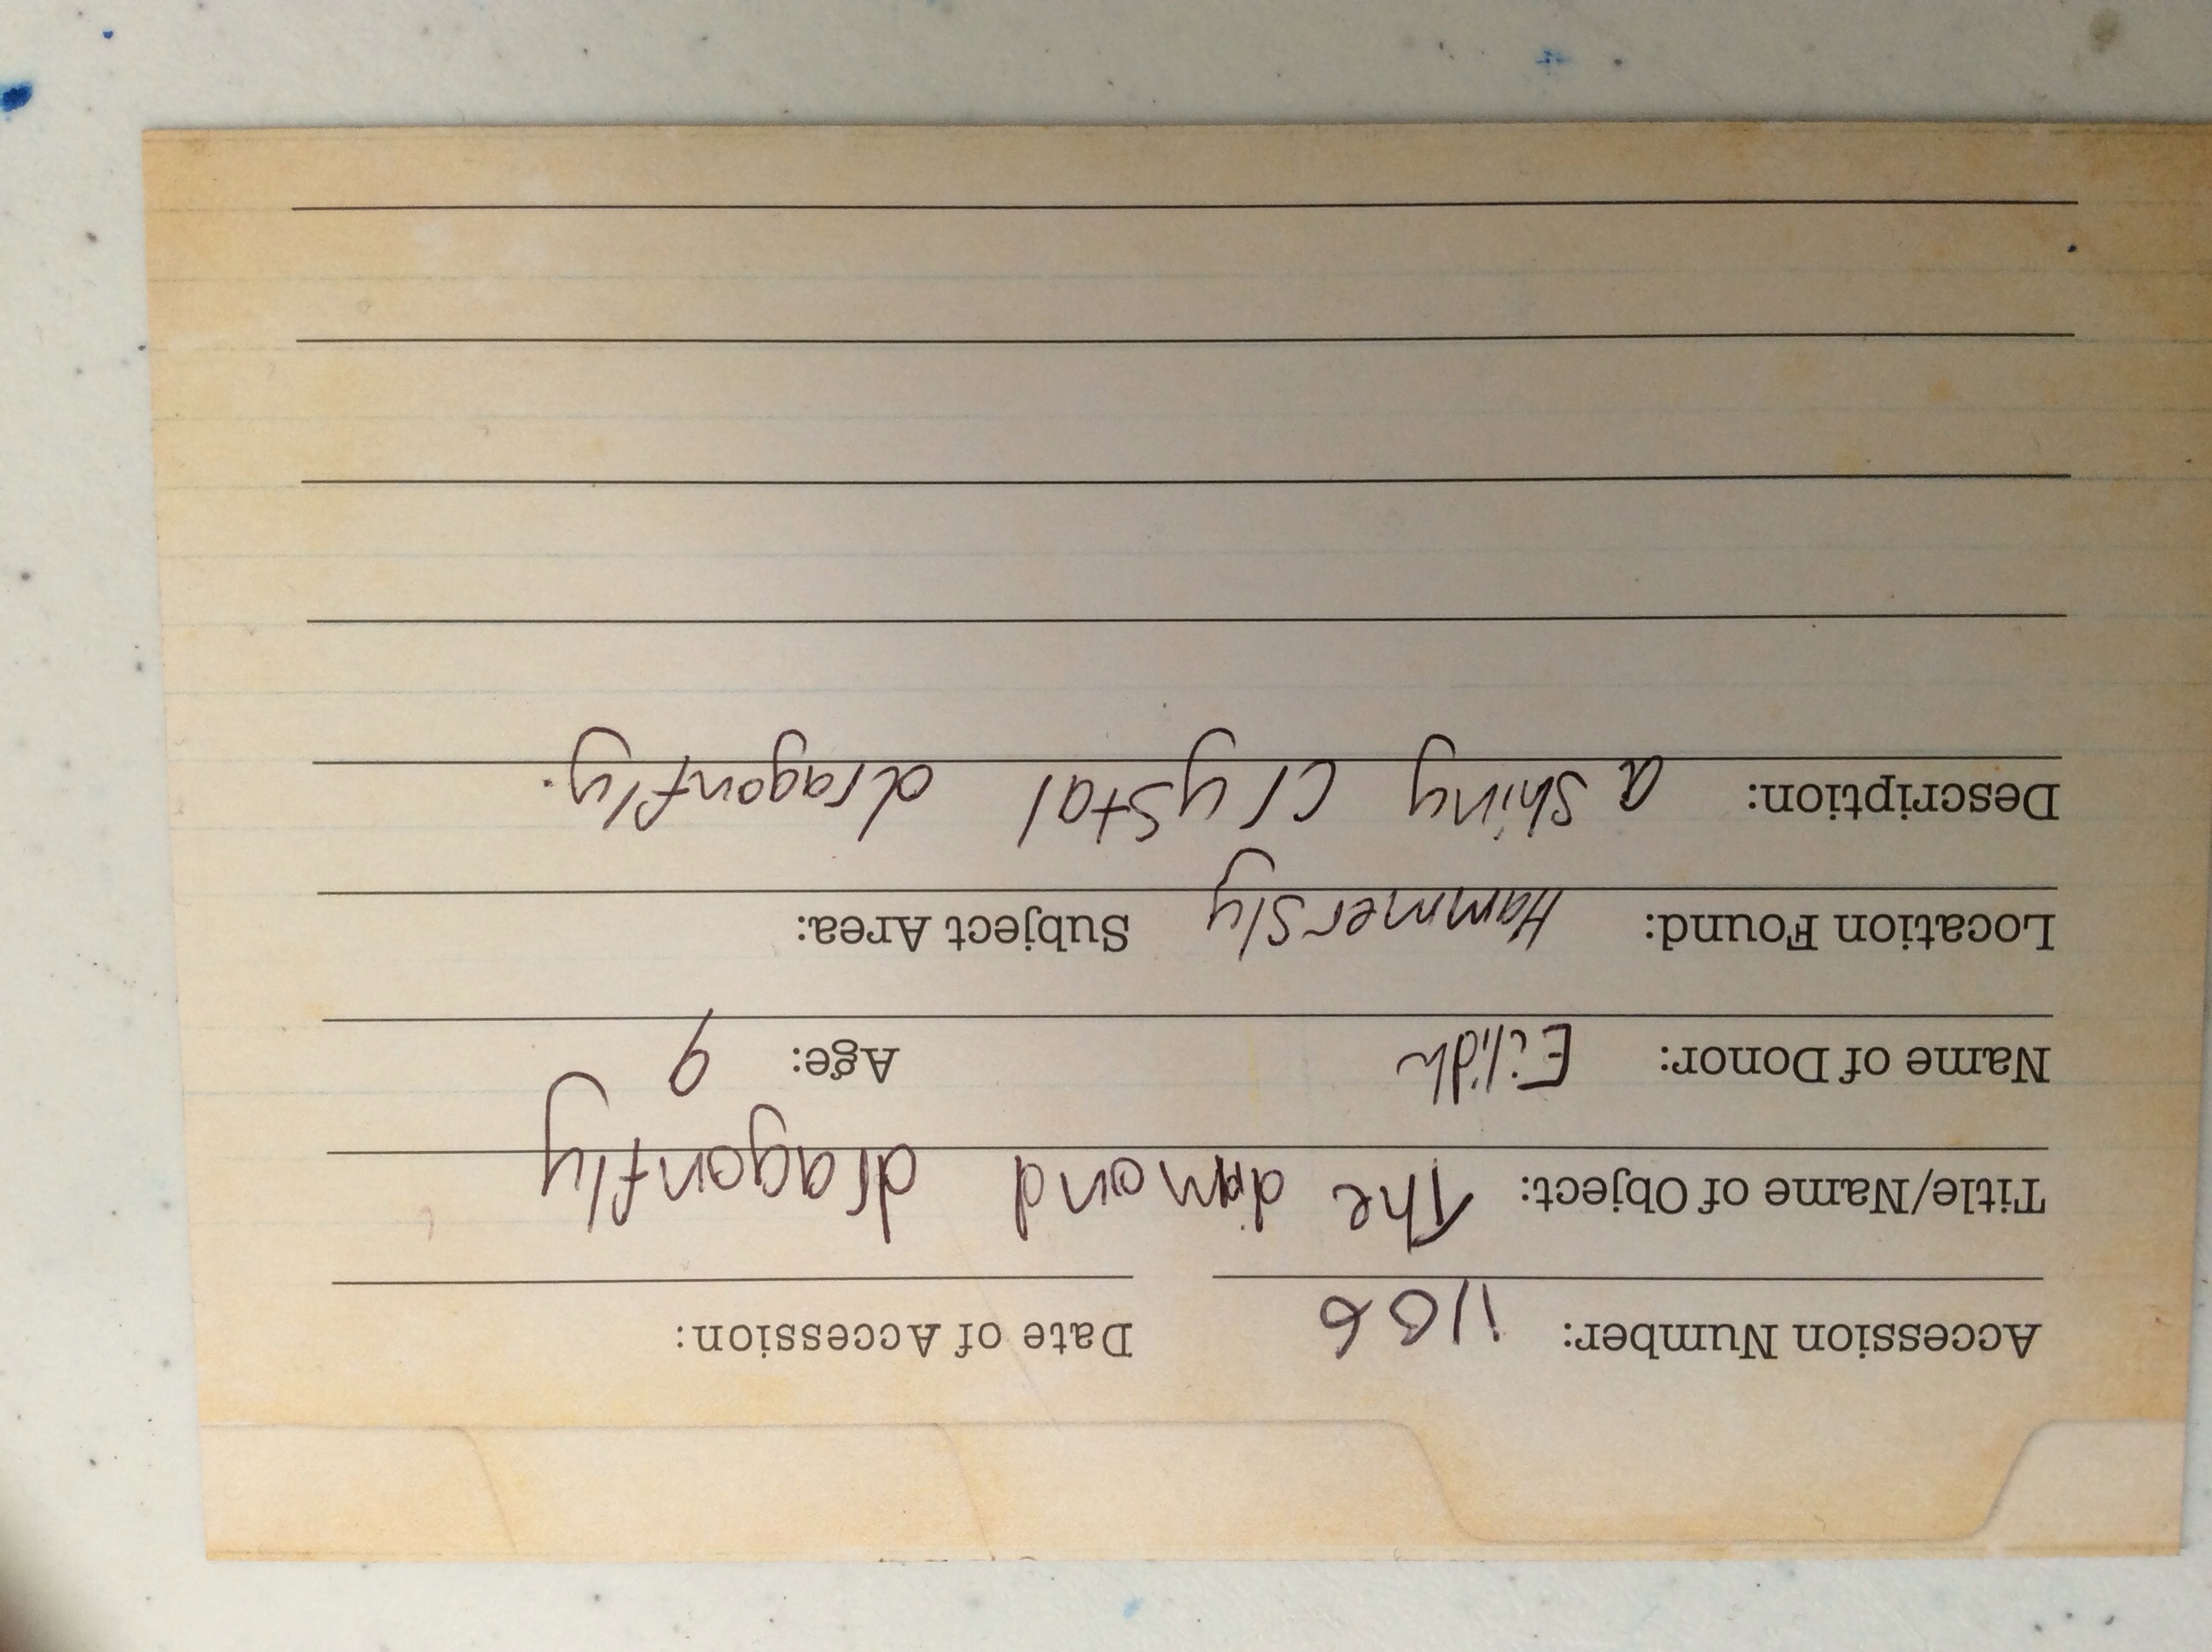 Accession Number: Date of Accession:
Title/Name of Object: The diamond dragonfly
Name of Donor: Eilidh Age: 9
Location Found: Hammersly Subject Area:
Description: a shiny crystal dragonfly.